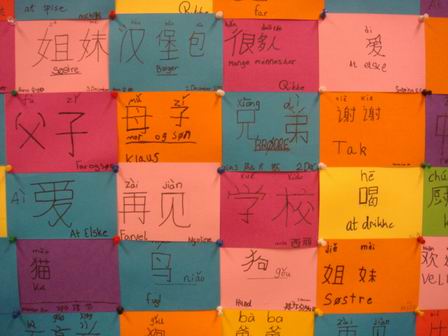 at spise
Qikke
far
姐妹
Søstre
汉堡包
Burger
很多人
Mange mennesker
Qikke
ài
爱
at elske
fù zǐ
父子
Far og søn
mǔ zǐ
母子
mor og søn
Klaus
xiōng dì
兄弟
BRØDRE
xiè xiè
谢谢
Tak
Ài
爱
At Elske
zài jiàn
再见
Farvel
xué xiào
学校
hē
喝
at drikke
māo
猫
鸟
niǎo
fugl
狗
gǒu
Hund
jiě mèi
姐妹
Søstre
欢
bà ba
爸爸